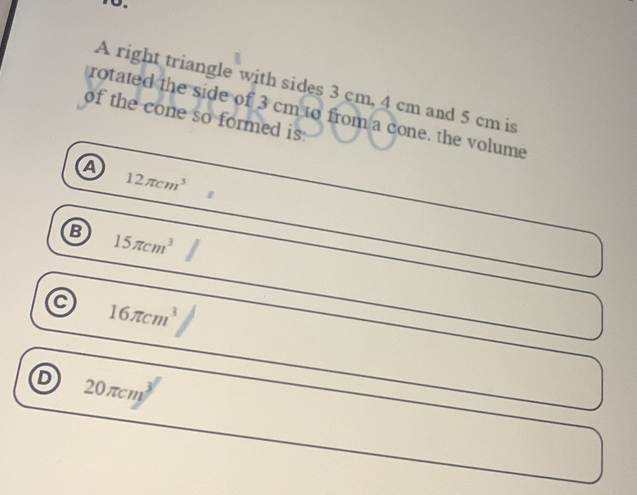 A right triangle with sides 3 cm, 4 cm and 5 cm is
rotated the side of 3 cm to from a cone. the volume
of the cone so formed is:
A 12πcm³
B 15πcm³
C 16πcm³
D 20πcm³